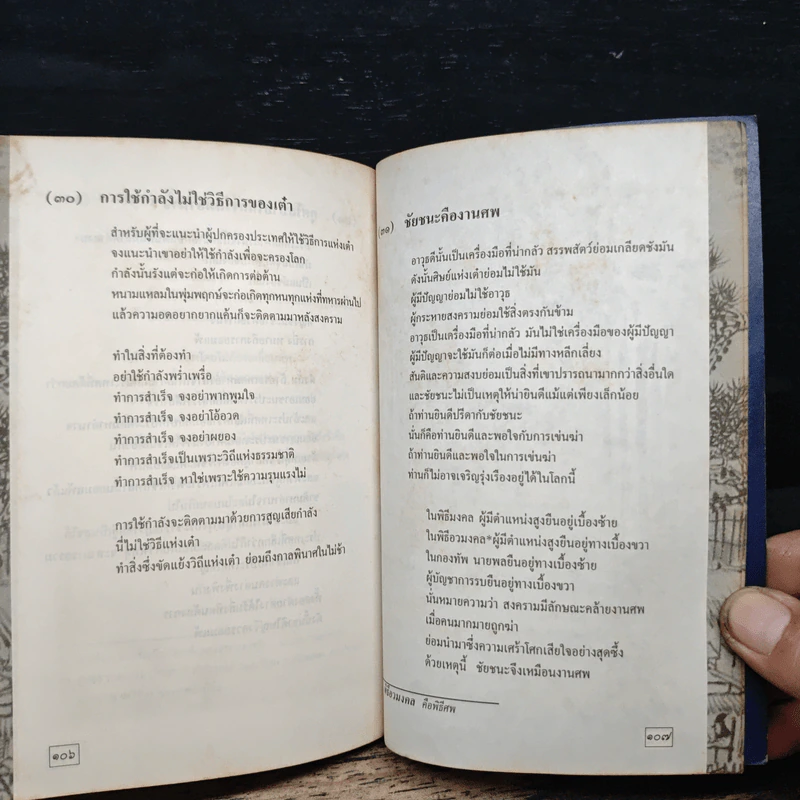 (๓๐) การใช้กำลังไม่ใช่วิธีการของเต๋า
สำหรับผู้ที่จะแนะนำผู้ปกครองประเทศให้ใช้วิธีการแห่งเต๋า
จงแนะนำเขาอย่าให้ใช้กำลังเพื่อจะครองโลก
กำลังนั้นรังแต่จะก่อให้เกิดการต่อต้าน
หนามแหลมในพุ่มพฤกษ์จะก่อเกิดทุกหนทุกแห่งที่ทหารผ่านไป
แล้วความอดอยากยากแค้นก็จะติดตามมาหลังสงคราม
ทำในสิ่งที่ต้องทำ
อย่าใช้กำลังพร่ำเพรื่อ
ทำการสำเร็จ จงอย่าพากพูมใจ
ทำการสำเร็จ จงอย่าโอ้อวด
ทำการสำเร็จ จงอย่าผยอง
ทำการสำเร็จเป็นเพราะวิถีแห่งธรรมชาติ
ทำการสำเร็จ หาใช่เพราะใช้ความรุนแรงไม่
การใช้กำลังจะติดตามมาด้วยการสูญเสียกำลัง
นี่ไม่ใช่วิถีแห่งเต๋า
ทำสิ่งซึ่งขัดแย้งวิถีแห่งเต๋า ย่อมถึงกาลพินาศในไม่ช้า
๑๐๖
(๓๑) ชัยชนะคืองานศพ
อาวุธดีนั้นเป็นเครื่องมือที่น่ากลัว สรรพสัตว์ย่อมเกลียดชังมัน
ดังนั้นศิษย์แห่งเต๋าย่อมไม่ใช้มัน
ผู้มีปัญญาย่อมไม่ใช้อาวุธ
ผู้กระหายสงครามย่อมใช้สิ่งตรงกันข้าม
อาวุธเป็นเครื่องมือที่น่ากลัว มันไม่ใช่เครื่องมือของผู้มีปัญญา
ผู้มีปัญญาจะใช้มันก็ต่อเมื่อไม่มีทางหลีกเลี่ยง
สันติและความสงบย่อมเป็นสิ่งที่เขาปรารถนามากกว่าสิ่งอื่นใด
และชัยชนะไม่เป็นเหตุให้น่ายินดีแม้แต่เพียงเล็กน้อย
ถ้าท่านยินดีปรีดากับชัยชนะ
นั่นก็คือท่านยินดีและพอใจกับการเข่นฆ่า
ถ้าท่านยินดีและพอใจในการเข่นฆ่า
ท่านก็ไม่อาจเจริญรุ่งเรืองอยู่ได้ในโลกนี้
ในพิธีมงคล ผู้มีตำแหน่งสูงยืนอยู่เบื้องซ้าย
ในพิธีอวมงคล*ผู้มีตำแหน่งสูงยืนอยู่ทางเบื้องขวา
ในกองทัพ นายพลยืนอยู่ทางเบื้องซ้าย
ผู้บัญชาการรบยืนอยู่ทางเบื้องขวา
นั่นหมายความว่า สงครามมีลักษณะคล้ายงานศพ
เมื่อคนมากมายถูกฆ่า
ย่อมนำมาซึ่งความเศร้าโศกเสียใจอย่างสุดซึ้ง
ด้วยเหตุนี้ ชัยชนะจึงเหมือนงานศพ
พิธีอวมงคล คือพิธีศพ
๑๐๗